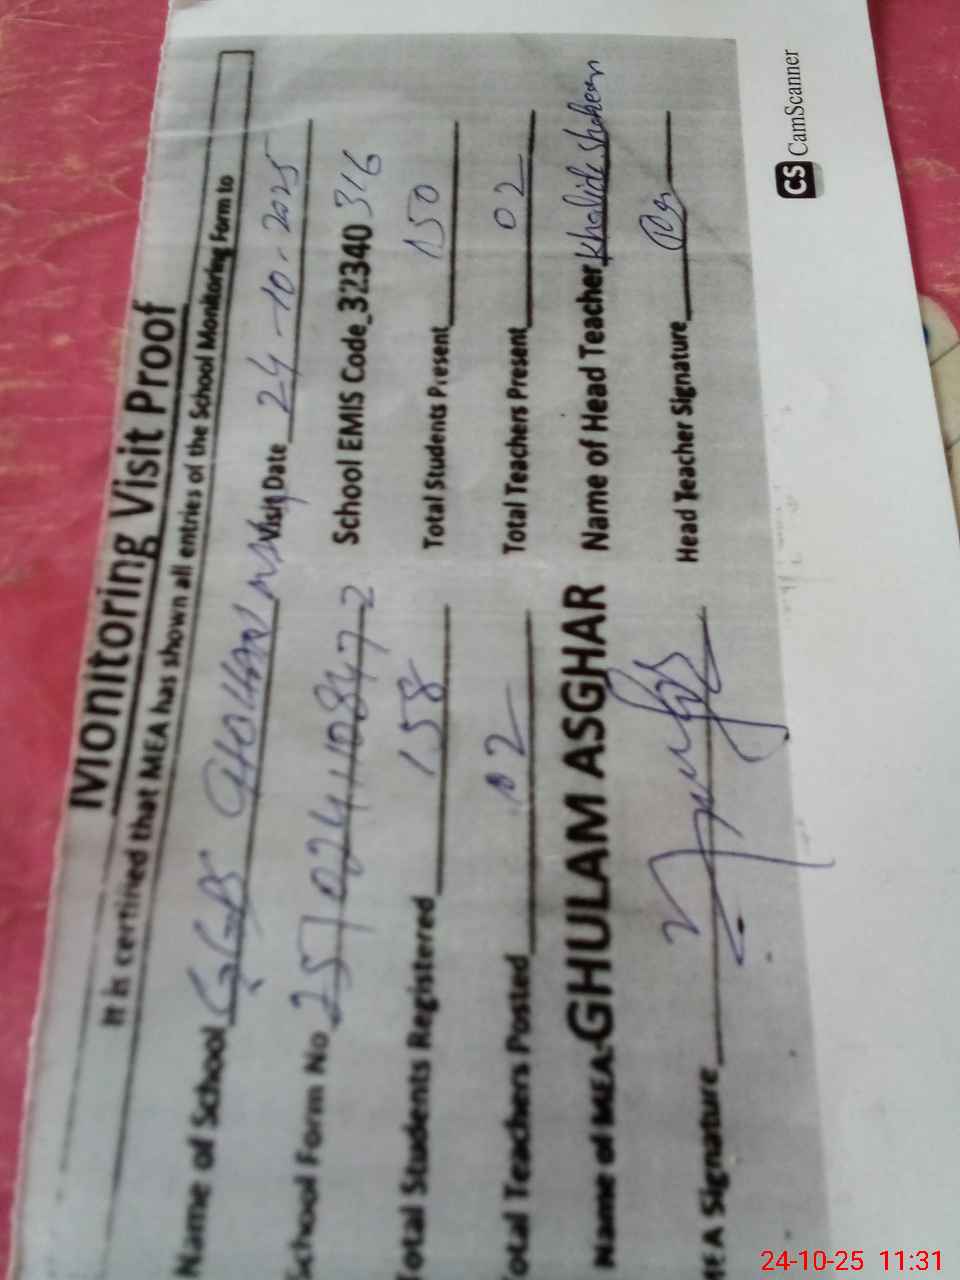 Monitoring Visit Proof
It is certified that MEA has shown all entries of the School Monitoring Form to
Name of School GGPS Visit Date 24-10-2025
School Form No School EMIS Code_32340316
Total Students Registered 158 Total Students Present 150
Total Teachers Posted 02 Total Teachers Present 02
Name of MEA:-GHULAM ASGHAR Name of Head Teacher Khalida Shaheen
MEA Signature Head Teacher Signature
CS CamScanner
24-10-25 11:31